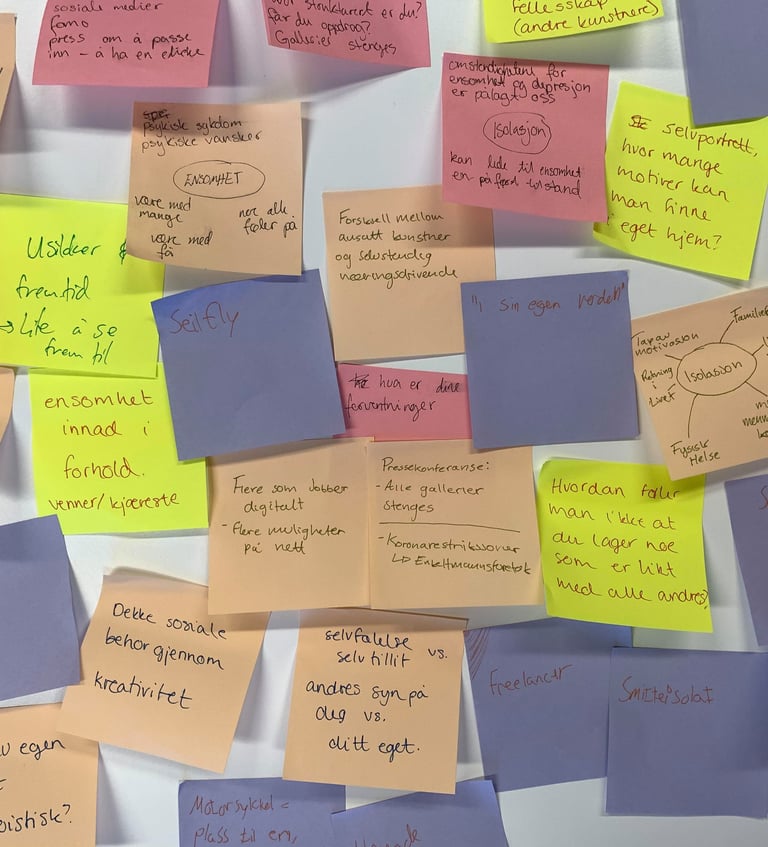 sosiale medier
fomo
press om å passe
inn – å ha en
er du?
får du oppdrag?
Gallerier stenges
fellesskap
(andre kunstnere)
psykisk sykdom
psykiske vansker
ENSOMHET
være med
mange
nær alle
føler på
være med
få
for
ensomhet og depresjon
er pålagt oss
Isolasjon
kan lede til ensomhet
en påført tilstand
selvportrett,
hvor mange
motiver kan
man finne
i eget hjem?
Usikker
fremtid
→ Lite å se
frem til
Forskjell mellom
ansatt kunstner
og selvstendig
næringsdrivende
Seilfly
"i sin egen verden"
Tap av
motivasjon
Familie
Retning
i
livet
Isolasjon
Fysisk
Helse
hva er dine
forventninger
ensomhet
innad i
forhold.
venner/kjæreste
Flere som jobber
digitalt
- flere muligheter
på nett
Pressekonferanse:
- Alle gallerier
stenges
- Koronarestriksjoner
↳ Enkeltmannsforetak
Hvordan føler
man ikke at
du lager noe
som er likt
med alle andres?
Dekke sosiale
behov gjennom
kreativitet
selvfølelse
selvtillit vs.
andres syn på
deg vs.
ditt eget.
Freelancer
Smitteisolat
egen
Motorsykkel =
plass til en,